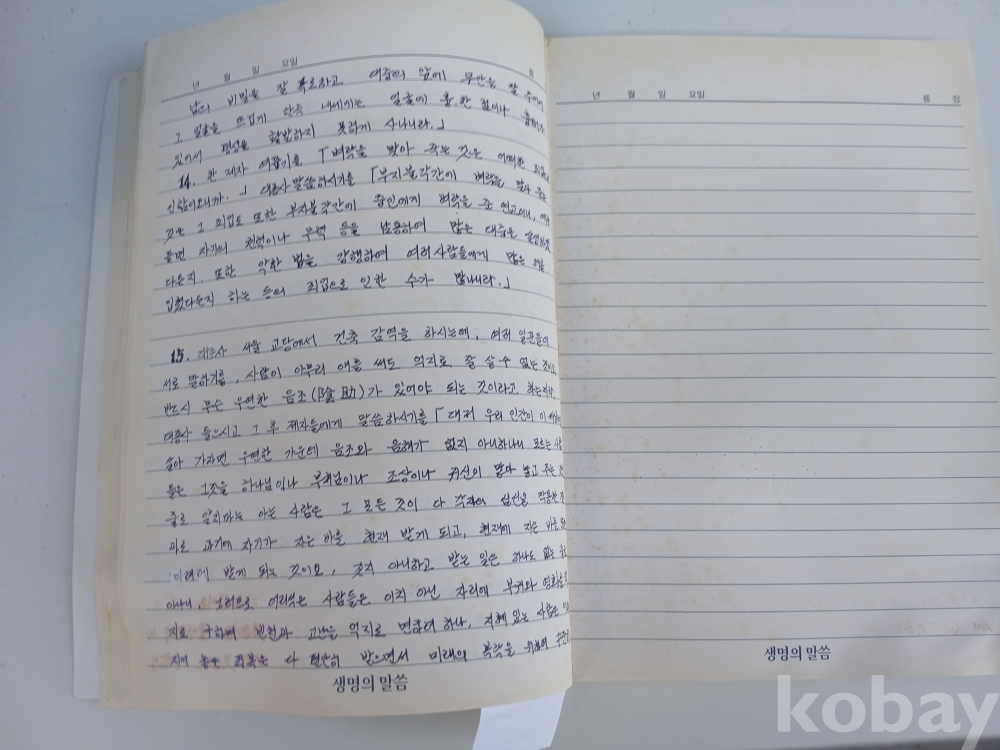 년 월 일 요일
남의 비밀을 잘 폭로하고 대중의 앞에 무안을 잘 주어서
그 얼굴을 뜨겁게 한즉 내세에는 얼굴에 흉한 점이나
있어서 평생을 활발하지 못하게 사나니라.」
14. 한 제자 여쭙기를 「벼락을 맞아 죽는 것은 어떠한 죄업으로
인함이오니까.」 대종사 말씀하시기를 「부지불각간에 벼락을 맞아 죽는
것은 그 죄업도 또한 부지불각간에 중인에게 벼락을 준 연고이니,
들면 자기의 권력이나 무력 등을 남용하여 많은 대중을 살생하였
다든지, 또한 악한 법을 강행하여 여러 사람들에게 많은 해를
입혔다든지 하는 등의 죄업으로 인한 수가 많나니라.」
15. 대종사 서울 교당에서 건축 감역을 하시는데, 여러 일꾼들이
서로 말하기를, 사람이 아무리 애를 써도 억지로 잘 살 수 없는 것이요
반드시 무슨 우연한 음조(陰助)가 있어야 되는 것이라고 하는지라,
대종사 들으시고 그 후 제자들에게 말씀하시기를 「대저 우리 인간이 이 세상에
살아 가자면 우연한 가운데 음조와 음해가 없지 아니하나니 모르는 사람
들은 그것을 하나님이나 부처님이나 조상이나 귀신이 맡아 놓고 주는 것
줄로 알지마는 아는 사람은 그 모든 것이 다 각자의 심신을 작용한 결
과로 과거에 자기가 지은 바를 현재 받게 되고, 현재에 지은 바를
미래에 받게 되는 것이요, 짓지 아니하고 받는 일은 하나도 없는 줄로
아나니, 그러므로 어리석은 사람들은 이치 아닌 자리에 부귀와 영화를 억
지로 구하며 빈천과 고난을 억지로 면하려 하나, 지혜 있는 사람은
지어 놓은 죄복은 다 편안히 받으면서 미래의 복락을 위하여 꾸준히
생명의 말씀
년 월 일 요일
생명의 말씀
kobay